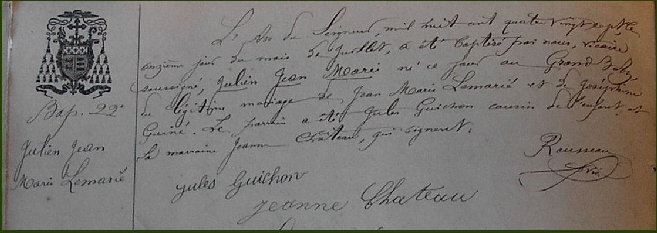 L'An du Seigneur, mil huit cent quatre vingt sept, le
onzième jour du mois de Juillet, a été baptisé par nous, vicaire
soussigné, Julien Jean Marie né ce jour au Grand
du légitime mariage de Jean Marie Lemarié et de Joséphine
Guiné. Le parrain a été Jules Guichon cousin de l'enfant et
la marraine Jeanne Château, qui signent.
Bap. 22e
Julien Jean
Marie Lemarié
Rousseau
vic.
Jules Guichon
Jeanne Chateau